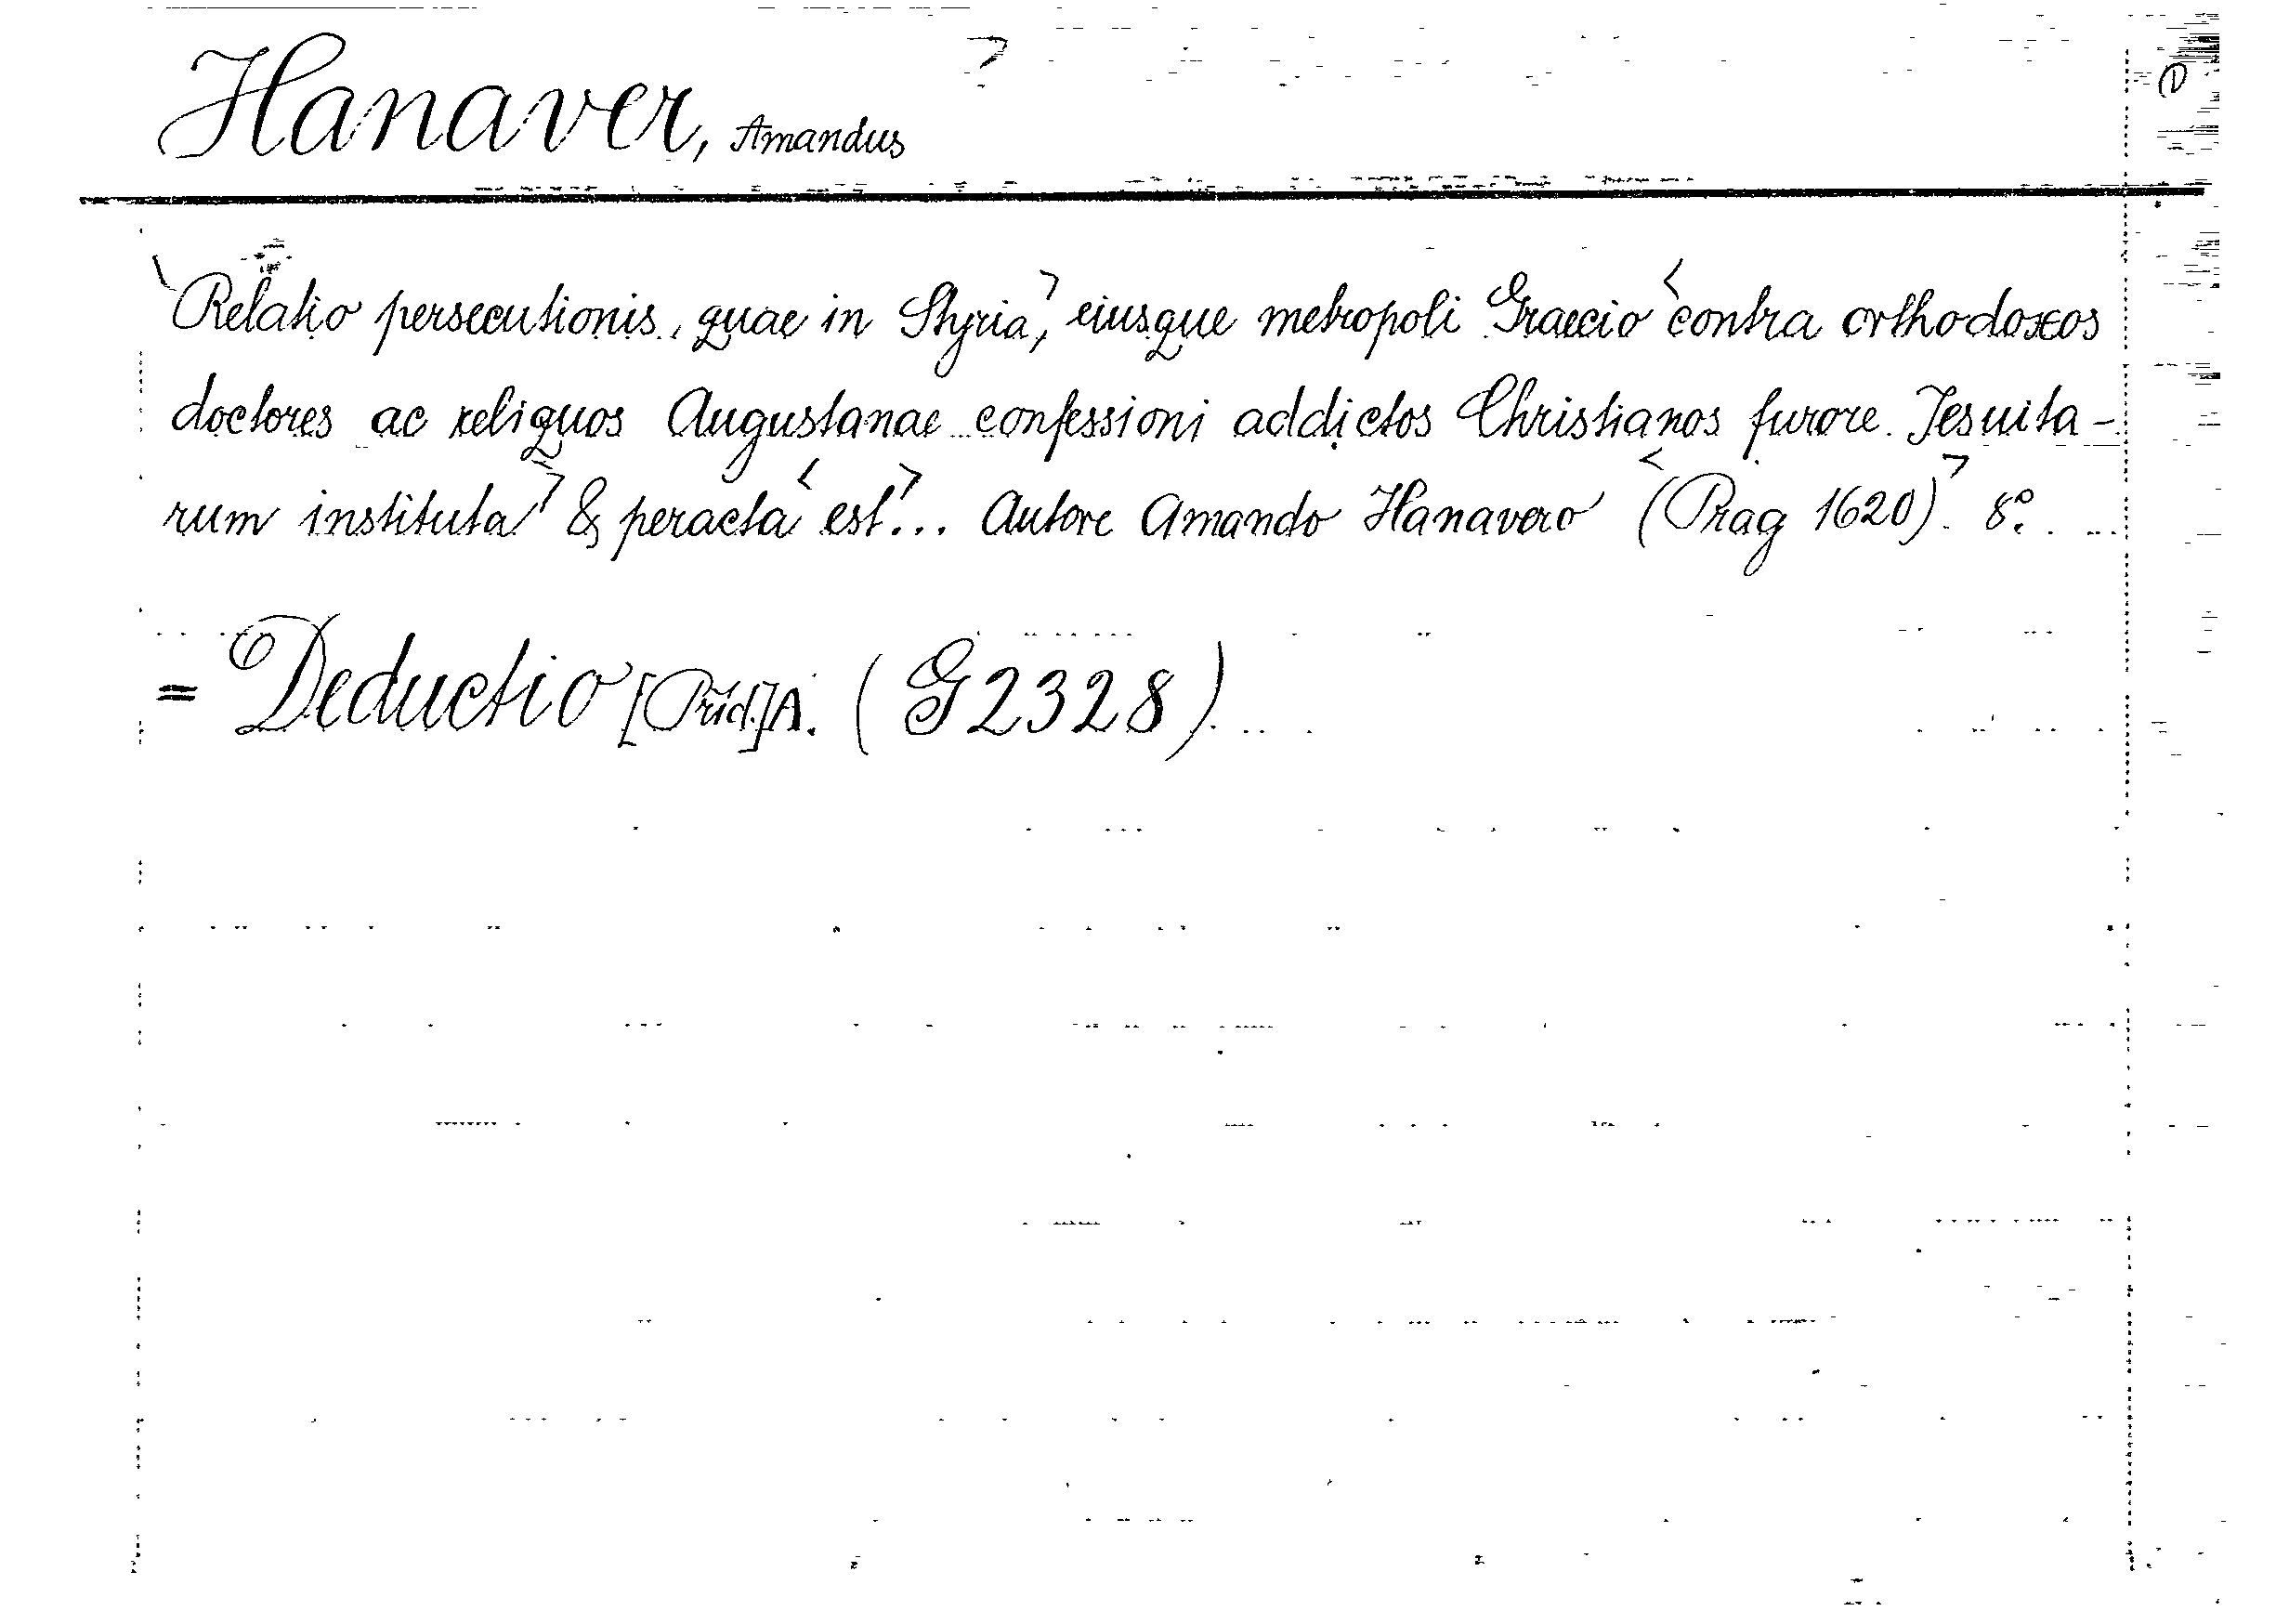 Hanaver, Amandus
Relatio persecutionis, quae in Styria, eiusque metropoli Graecio contra orthodoxos
doctores ac reliquos Augustanae confessioni addictos Christianos furore Jesuita-
rum instituta & peracta est... Autore Amando Hanavero (Prag 1620). 8°.
= Deductio [Präd.] A. (G 2328).